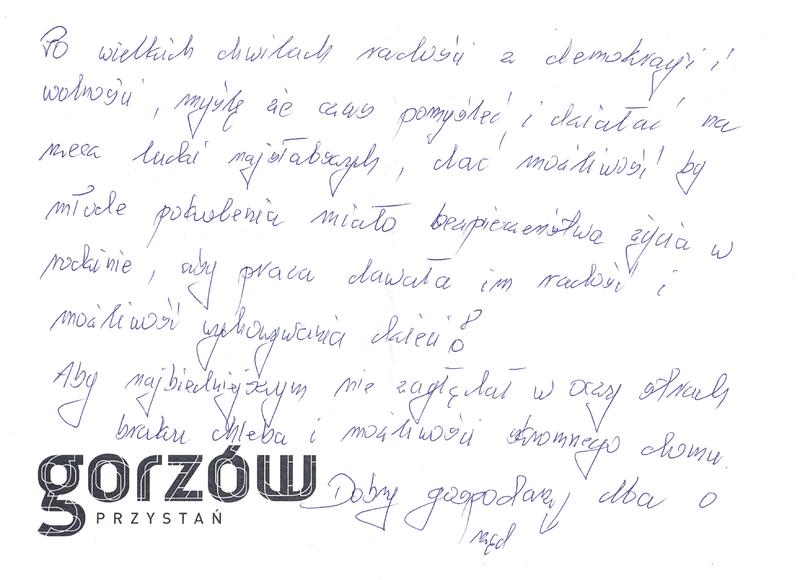 Po wielkich chwilach radości z demokracji i
wolności, myślę że czas pomyśleć i działać na
rzecz ludzi najsłabszych, dać możliwość by
młode pokolenia miało bezpieczeństwa życia w
rodzinie, aby praca dawała im radość i
możliwość wychowywania dzieci
Aby najbiedniejszym nie zaglądał w oczy strach
braku chleba i możliwości skromnego domu.
gorzów
PRZYSTAŃ
Dobry gospodarz dba o